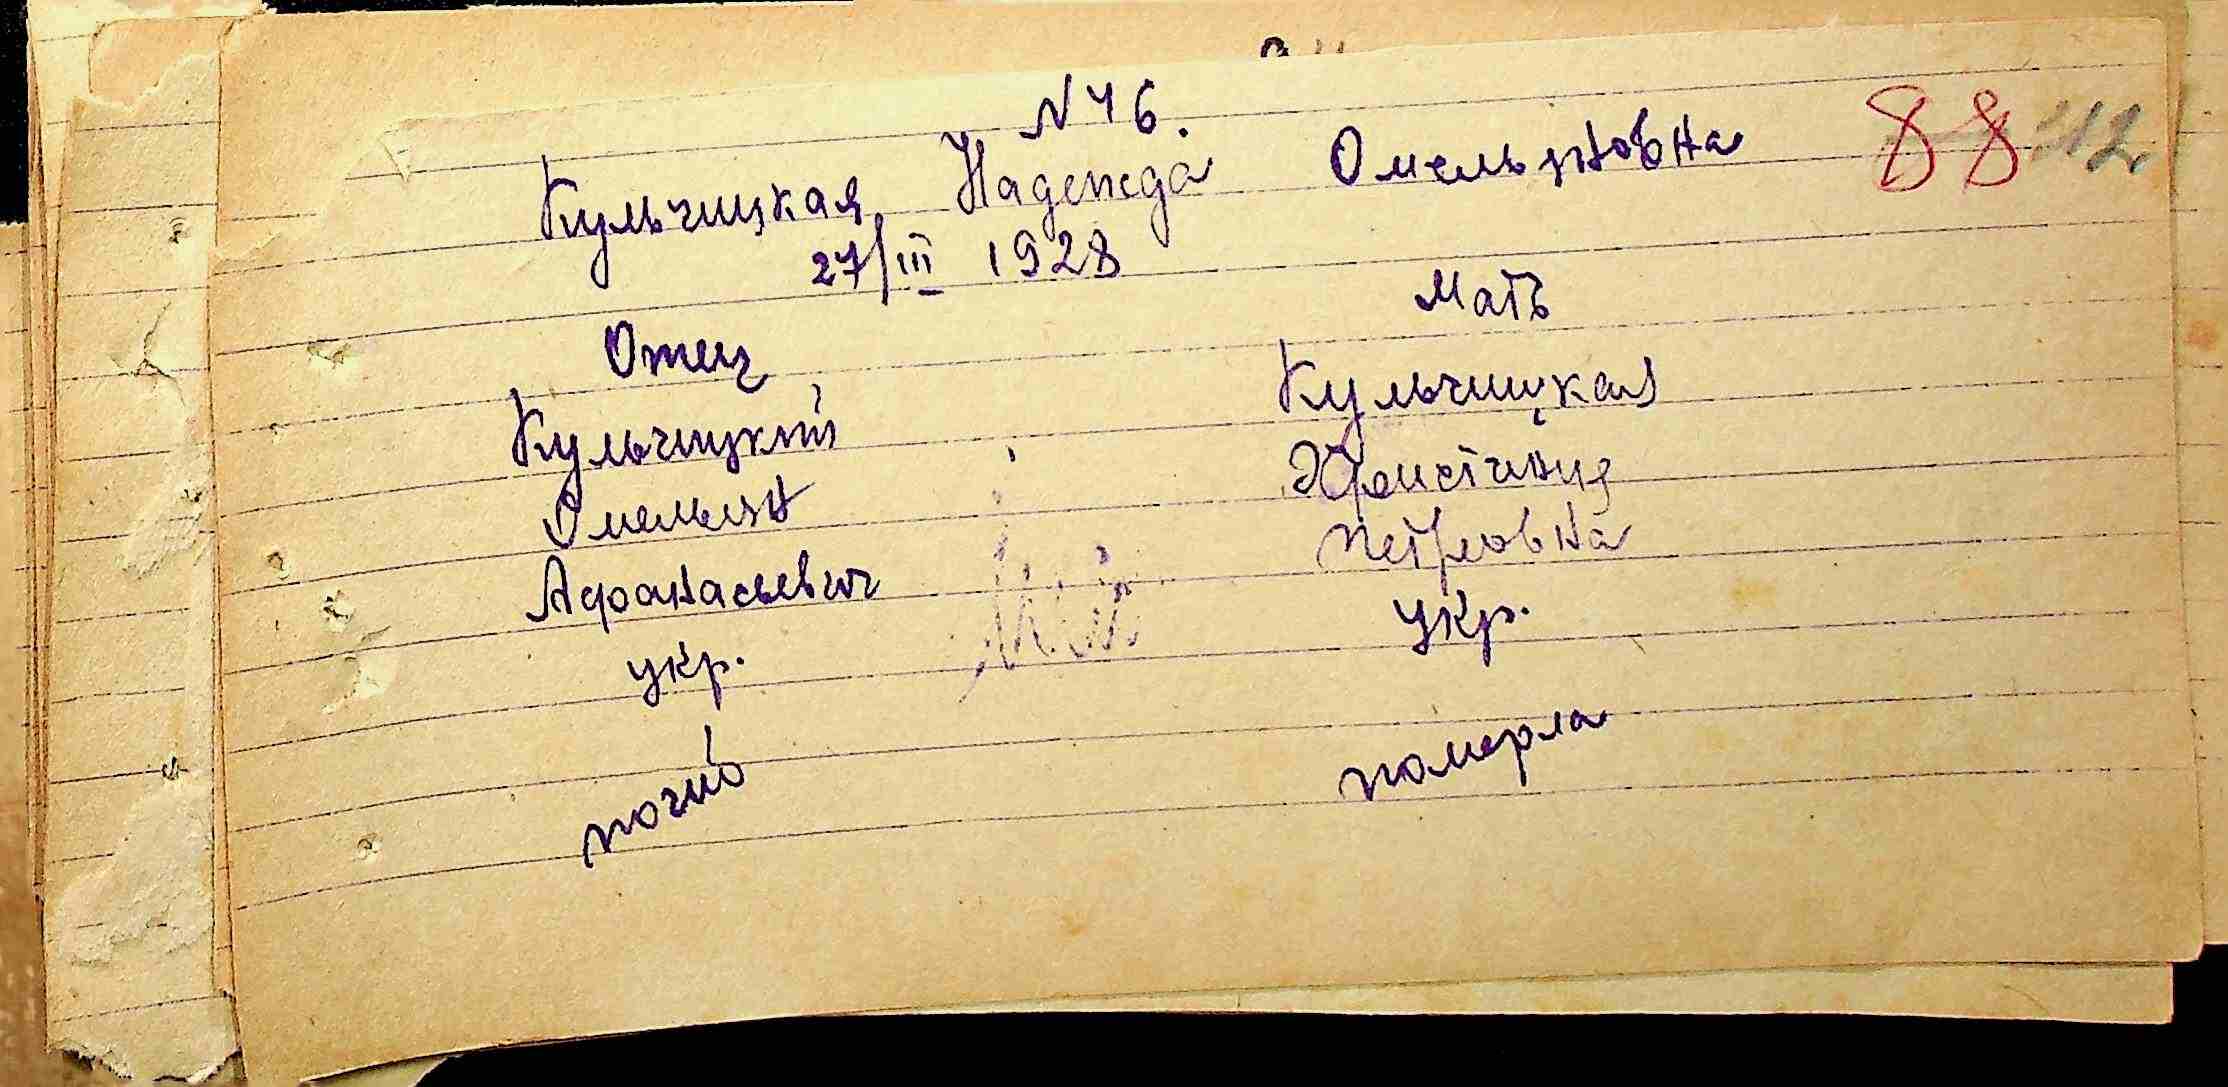 N 46.
Кульчицкая Надежда Омельяновна
88 42
27/III 1928
Отец
Мать
Кульчицкий
Кульчицкая
Омельян
Христина
Афанасьевич
Петровна
укр.
укр.
погиб
померла